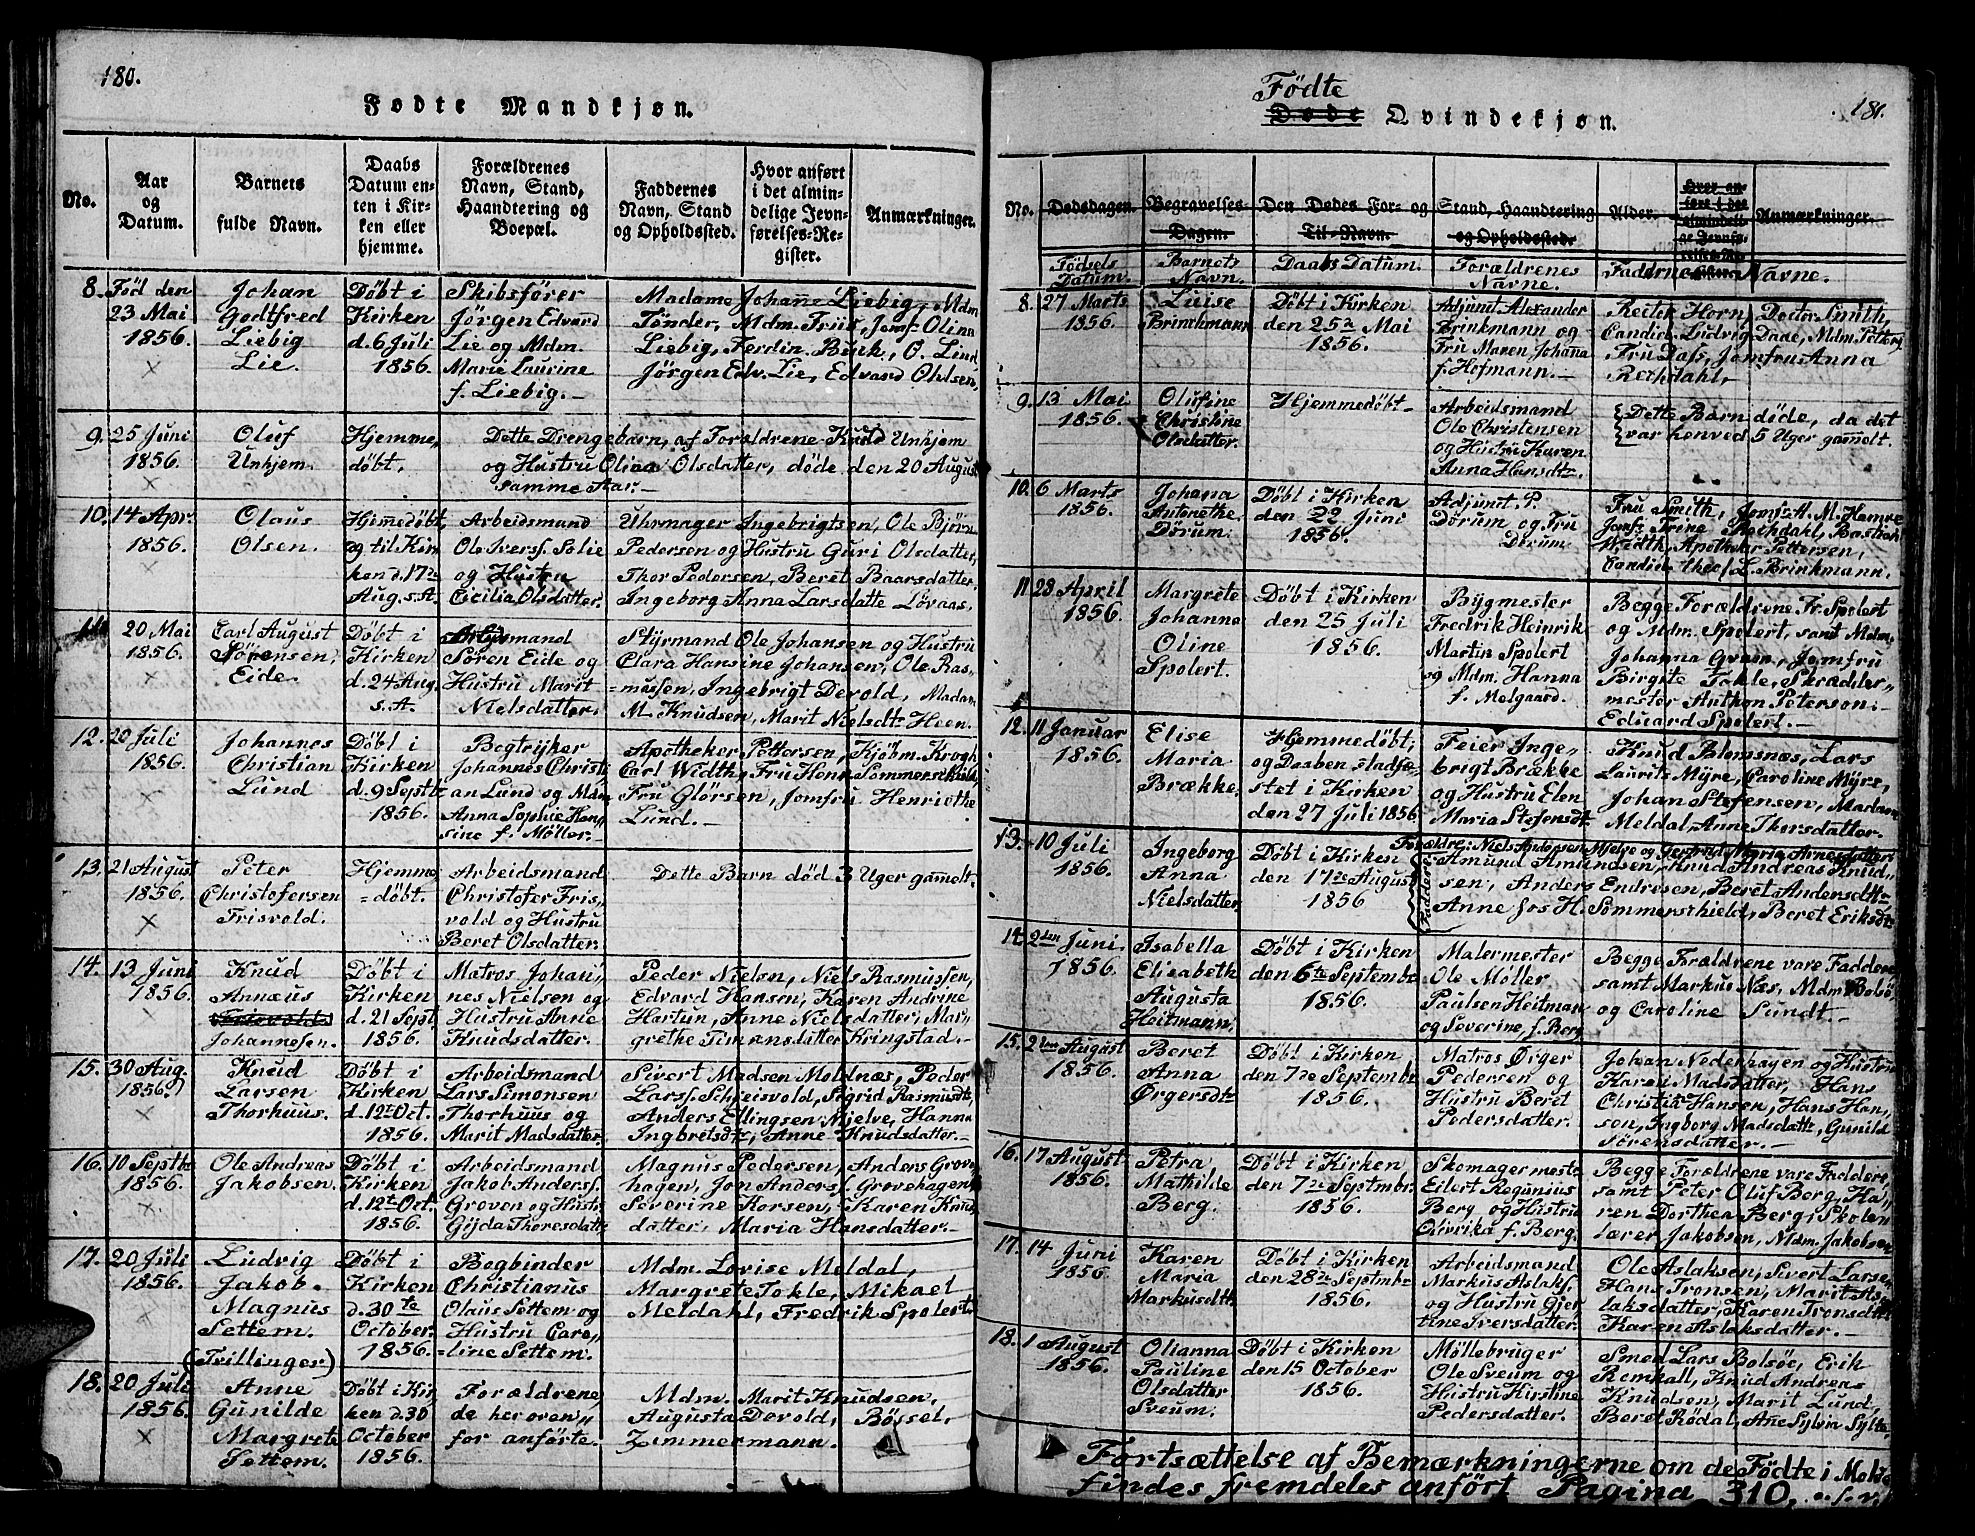 180.
Fødte Mandkjøn.
No.
Aar
og
Datum.
Barnets
fulde Navn.
Daabs
Datum en-
ten i Kir-
ken eller
hjemme.
Forældrenes
Navn, Stand,
Haandtering og
Boepæl.
Faddernes
Navn, Stand
og Opholdssted.
Hvor anført
i det almin-
delige Jevn-
førelses-Re-
gister.
Anmærkninger.
8.
Fød den
23 Mai
1856.
Johan
Godtfred
Liebig
Lie.
Døbt i
Kirken
d. 6 Juli
1856.
Skibsfører
Jørgen Edvard
Lie og Mdm.
Marie Laurine
f. Liebig.
Madame Johanne Liebig, Mdm
Tønder, Mdm. Friis, Jomf. Olina
Liebig, Ferdin. Buck, O. Lind
Jørgen Edv. Lie, Edvard Ohlsen,
9.
25 Juni
1856.
Oluf
Unhjem.
Hjemme,
døbt.
Dette Drengebarn, af Forældrene Knud Unhjem
og Hustru Olina Olsdatter, døde den 20 August
samme Aar.
10.
14 Apr.
1856.
Olaus
Olsen.
Hjemmedøbt,
og til Kir
ken d. 17de
Aug. s. A.
Arbeidsmand
Ole Iverss. Solie
og Hustru
Cicilia Olsdatter.
Uhrmager Ingebrigtsen, Ole Bjørn
Pedersen og Hustru Guri Olsdatter,
Thor Pedersen, Beret Baarsdatter,
Ingeborg Anna Larsdatte Løvaas.
11
20 Mai
1856.
Carl August
Sørensen,
Eide.
Døbt i
Kirken
d. 24 Aug.
s. A.
Arbeidsmand
Søren Eide og
Hustru Marit
Nielsdatter.
Styrmand Ole Johansen og Hustru
Clara Hansine Johansen, Ole Ras-
mussen, Ingebrigt Devold, Madam
M. Knudsen, Marit Nielsdtr Heen.
12.
20 Juli
1856.
Johannes
Christian
Lund
Døbt i
Kirken
d. 9 Septbr
1856.
Bogtrijker
Johannes Christi
an Lund og Mdm
Anna Sophie Han,,
sine f. Møller.
Apotheker Pettersen, Kjöbm. Krogh
Carl Width, Fru Henr. Sommerschield
Fru Glørsen, Jomfru Henriethe
Lund.
13.
21 August
1856.
Peter
Christofersen
Frisvold.
Hjemme
=døbt.
Arbeidsmand
Christofer Fris,,
vold og Hustru
Beret Olsdatter.
Dette Barn død 3 Uger gammelt.
14.
13 Juni
1856.
Knud
Annæus
Johannesen.
Døbt i
Kirken
d. 21 Sept
1856.
Matros Johan,,
nes Nielsen og
Hustru Anne
Knudsdatter.
Peder Nielsen, Niels Rasmussen,
Edvard Hansen, Karen Andrine
Hartun, Anne Nielsdatter, Mar,
grethe Timansdatter Kringstad.
15.
30 Aug.
1856.
Knud
Larsen
Thorhuus.
Døbt i
Kirken
d. 12te Oct.
1856.
Arbeidsmand
Lars Simonsen
Thorhuus og
Marit Madsdatter.
Sivert Madsen Moldnæs, Peder
Larss. Schjeisvold, Sigrid Rasmusdtr
Anders Ellingsen Mjelve, Hanna
Ingbretsdtr, Anne Knudsdatter.
16.
10 Septbr
1856.
Ole Andreas
Jakobsen.
Døbt i
Kirken
d. 12te Oct.
1856.
Arbeidsmand
Jakob Anderss.
Groven og Hustru
Gijda Thoresdattr
Magnus Pedersen, Anders Grove
hagen, Jon Anderss. Grovehagen
Severine Korsen, Karen Knus
datter, Maria Hansdatter.
17.
20 Juli
1856.
Ludvig
Jakob
Magnus
Settem.
(Tvillinger)
Døbt i
Kirken
d. 30te
October.
1856.
Bogbinder
Christianus
Olaus Settem og
Hustru Caro,,
=line Settem.
Mdm. Lovise Meldal,
Margrete Tokle, Mikael
Meldahl, Fredrik Spolert.
18.
20 Juli
1856.
Anne
Gunilde
Margrete
Settem.
Døbt i Kir,
ken d. 30
October
1856.
Forældrene,
de her oven,,
for anførte.
Mdm. Marit Knudsen,
Augusta Dovold, Børsel,
Zimmermann.
181.
Fødte
Døde Qvindekjøn.
No.
Dødsdagen.
Begravelses-
Dagen.
Den Dødes For- og
Til-Navn.
Stand, Haandtering
og Opholdssted.
Alder.
Anmærkninger.
Fødsels
Datum.
Barnets
Navn.
Daabs Datum.
Forældrenes
Navne.
Faddernes Navne.
8.
27 Marts
1856.
Luise
Brinchmann
Døbt i Kirken
den 25de Mai
1856.
Adjunct Alexander
Brinkmann og
Fru Maren Johana
f. Hofmann.
Rector Horn, Doctor Smith,
Candid. Ludvig Daae, Mdm. Petters
Fru Dass, Jomfru Anna
Rechdahl,
9.
13 Mai
1856.
Olufine
Christine
Olsdatter.
Hjemmedøbt
Arbeidsmand
Ole Christensen
og Hustru Karen
Anna Hansdtr.
Dette Barn døde, da det
var henved 5 Uger gammelt.
10.
6 Marts
1856.
Johana
Antonethe
Dørum.
Døbt i Kirken
den 22 Juni
1856.
Adjunct P.
Dørum og Fru
Dørum.
Fru Smith, Jomfr. A. M. Hamre
Jomfr. Trine Rechdahl, Bastian
Width, Apotheker Pettersen,
Candid. theol. L. Brinkmann.
11
28 April
1856.
Margrete
Johanne
Oline
Spolert.
Døbt i Kirken
den 25 Juli
1856.
Bijgmester
Fredrik Heinrik
Martin Spolert
og Mdm. Hanna
f. Melgaard.
Begge Forældrene Fr. Spolert
og Mdm. Spolert, samt Mdm.
Johanna Gruen, Jomfru
Birgite Tokle, Skrædder,,
mester Anthon Peterson.
Eduard Spolert.
12.
11 Januar
1856.
Elise
Maria
Brække.
Hjemmedøbt,
og Daaben stadfæ,
stet i Kirken
den 27 Juli 1856
Feier Inge,
brigt Brække
og Hustru Elen
Maria Stefensdt.
Knud Blomsnæs, Lars
Laurits Myre, Caroline Myrs,
Johan Stefensen, Madam
Meldal, Anne Thorsdatter.
13.
10 Juli
1856.
Ingeborg
Anna
Nielsdatter.
Døbt i Kirken
den 17de August
1856
Forældre: Niels Andersen Mjelve og Gertrud Maria Arnesdatter
Faddere
Amund Amundsen, Knud Andreas Knud-
sen, Anders Endresen, Beret Andersdtr
Anne Jos H. Sommerschield, Beret Eriksdtr
14.
2den Juni
1856.
Isabella
Elisabeth
Augusta
Heitmann.
Døbt i Kirken
den 6te Septembr
1856.
Malermester
Ole Møller
Paulsen Heitman
og Severine, f. Berg
Begge Forældrene vare Faddere
samt Markus Næs, Mdm Bolsø
og Caroline Sundt.
15.
2den August
1856.
Beret
Anna
Ørgersdtr
Døbt i Kirken
den 7de Septembr
1856.
Matros Ørger
Pedersen og
Hustru Beret
Pedersdatter.
Johan Nedenhagen og Hustru
Karen Madsdatter, Hans
Christian Hansen, Hans Han,,
son, Ingborg Madsdattr, Gunild
Sørensdatter.
16.
17 August
1856.
Petra
Mathilde
Berg.
Døbt i Kirken
den 7de Septmbr.
1856.
Skomagermeste
Eilert Reginius
Berg og Hustru
Olivrika f. Berg.
Begge Forældrene vare Faddere,
samt Peter Oluf Berg, Ka,
ren Dorthea Berg, Skolen
lærer Jakobsen, Mdm. Jakobsen
17.
14 Juni
1856.
Karen
Maria
Markusdtr.
Døbt i Kirken
den 28de Septmbr
1856.
Arbeidsmand
Markus Aslaks.
og Hustru Gjer
tine Iversdatter.
Ole Aslaksen, Sivert Larse,
Hans Tronsen, Marit As
laksdatter, Karen Tronsdtr
Karen Aslaksdatter.
18.
1 August
1856.
Olianna
Pauline
Olsdatter
Sveum.
Døbt i Kirken
den 15 October
1856.
Møllebruger
Ole Sveum og
Hustru Kirstine
Pedersdatter.
Smed Lars Bolsöe, Erik
Remhall, Knud Andreas
Knudsen, Marit Lund,
Beret Rødal, Ane Sylvin Sylte
Fortsættelse af Bemærkningerne om de Fødte i Molde
findes fremdeles anført Pagina 310. o. s. v.